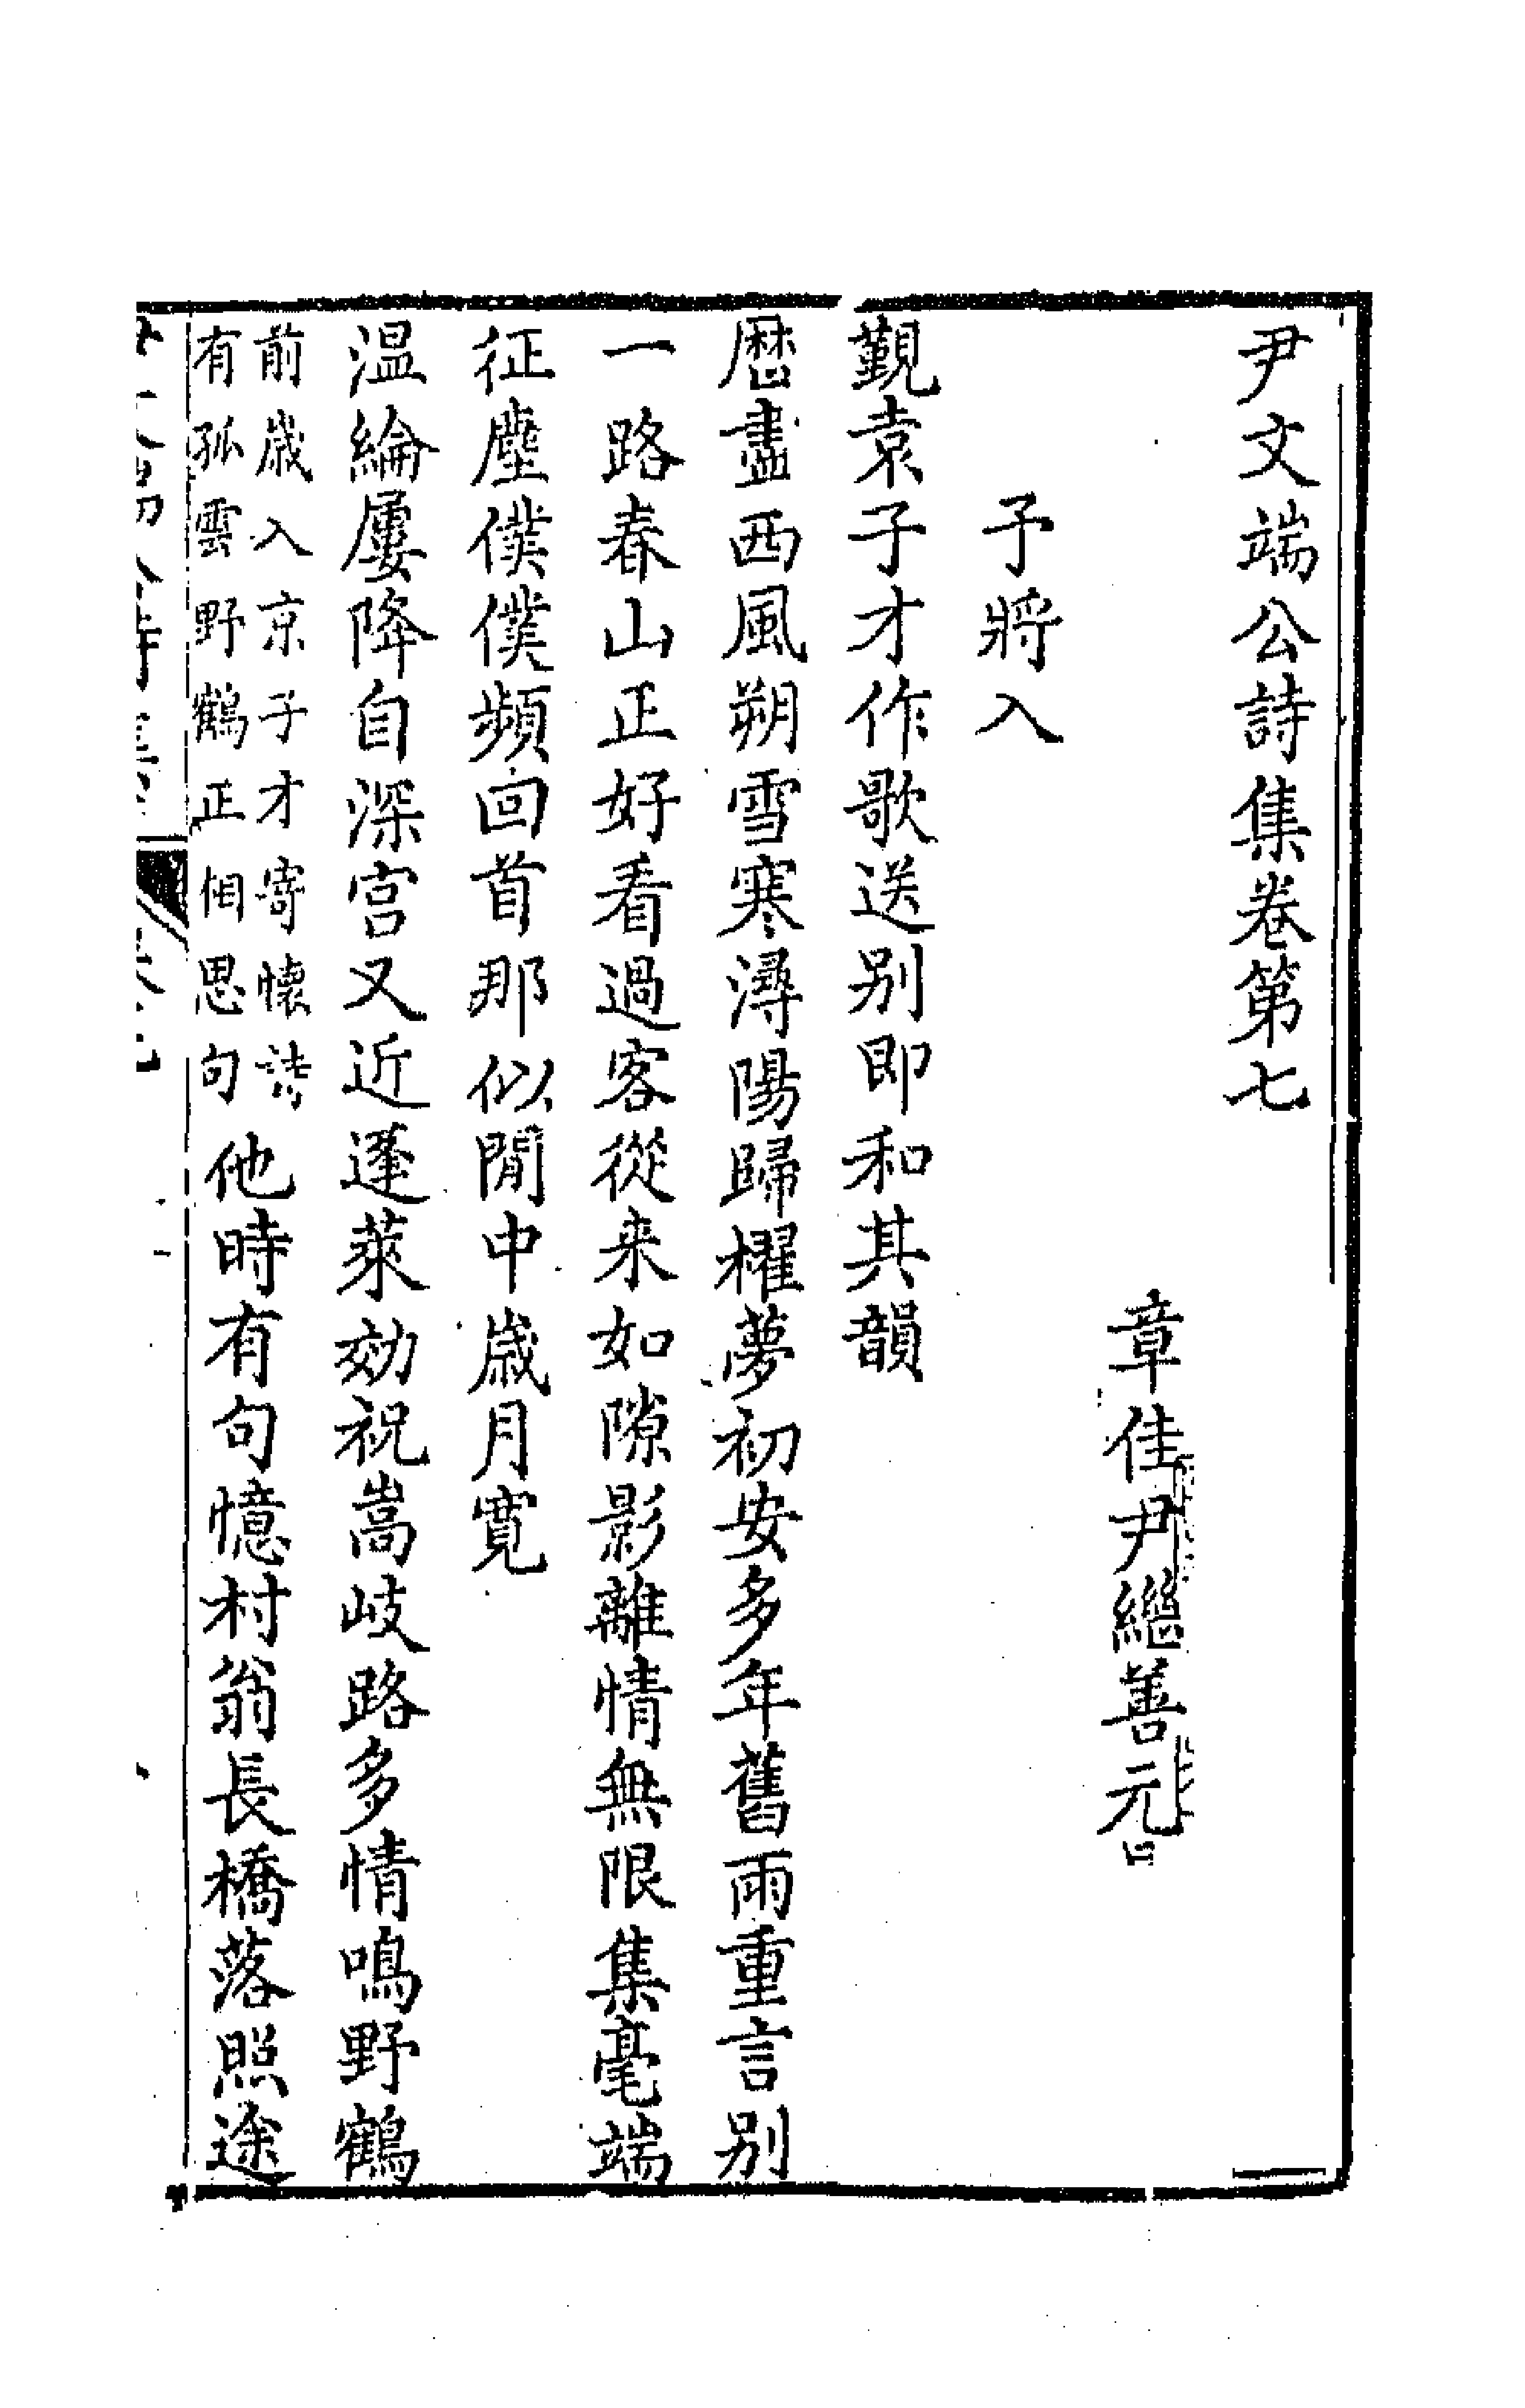 尹文端公詩集卷第七
章佳尹繼善元
予將入
覲袁子才作歌送別即和其韻
歴盡西風朔雪寒潯陽歸櫂夢初安多年舊雨重言別
一路春山正好看過客從来如隙影離情無限集毫端
征塵僕僕頻回首那似閒中歲月寛
温綸屢降自深宫又近蓬萊効祝嵩岐路多情鳴野鶴
前歲入京子才寄懷詩
有孤雲野鶴正相思句
他時有句憶村翁長橋落照途